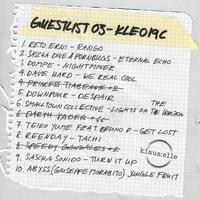 GUESTLIST 03 - KLEOPIC
1. RETO ERNI - RANGO
2. SASCHA DIVE & PORNBUGS - ETERNAL ECHO
3. DOMPE - NIGHT MOVER
4. DAVE HARD - WE REAL COOL
4. PRINCESS
5. DOWNPOUR - DESPAIR
6. SMALLTOWN COLLECTIVE - LIGHTS ON THE HORIZON
6. EARTH VADER +6
7. TEIKO YUME FEAT. BRUNO R - GET LOST
8. REENDAY - TACHI
8. SPEEDY GONZALES +2
9. SASCHA SONIDO - TURN IT UP
10. ABYSS (GIUSEPPE MORABITO) JUNGLE FRUIT
klaus:elle